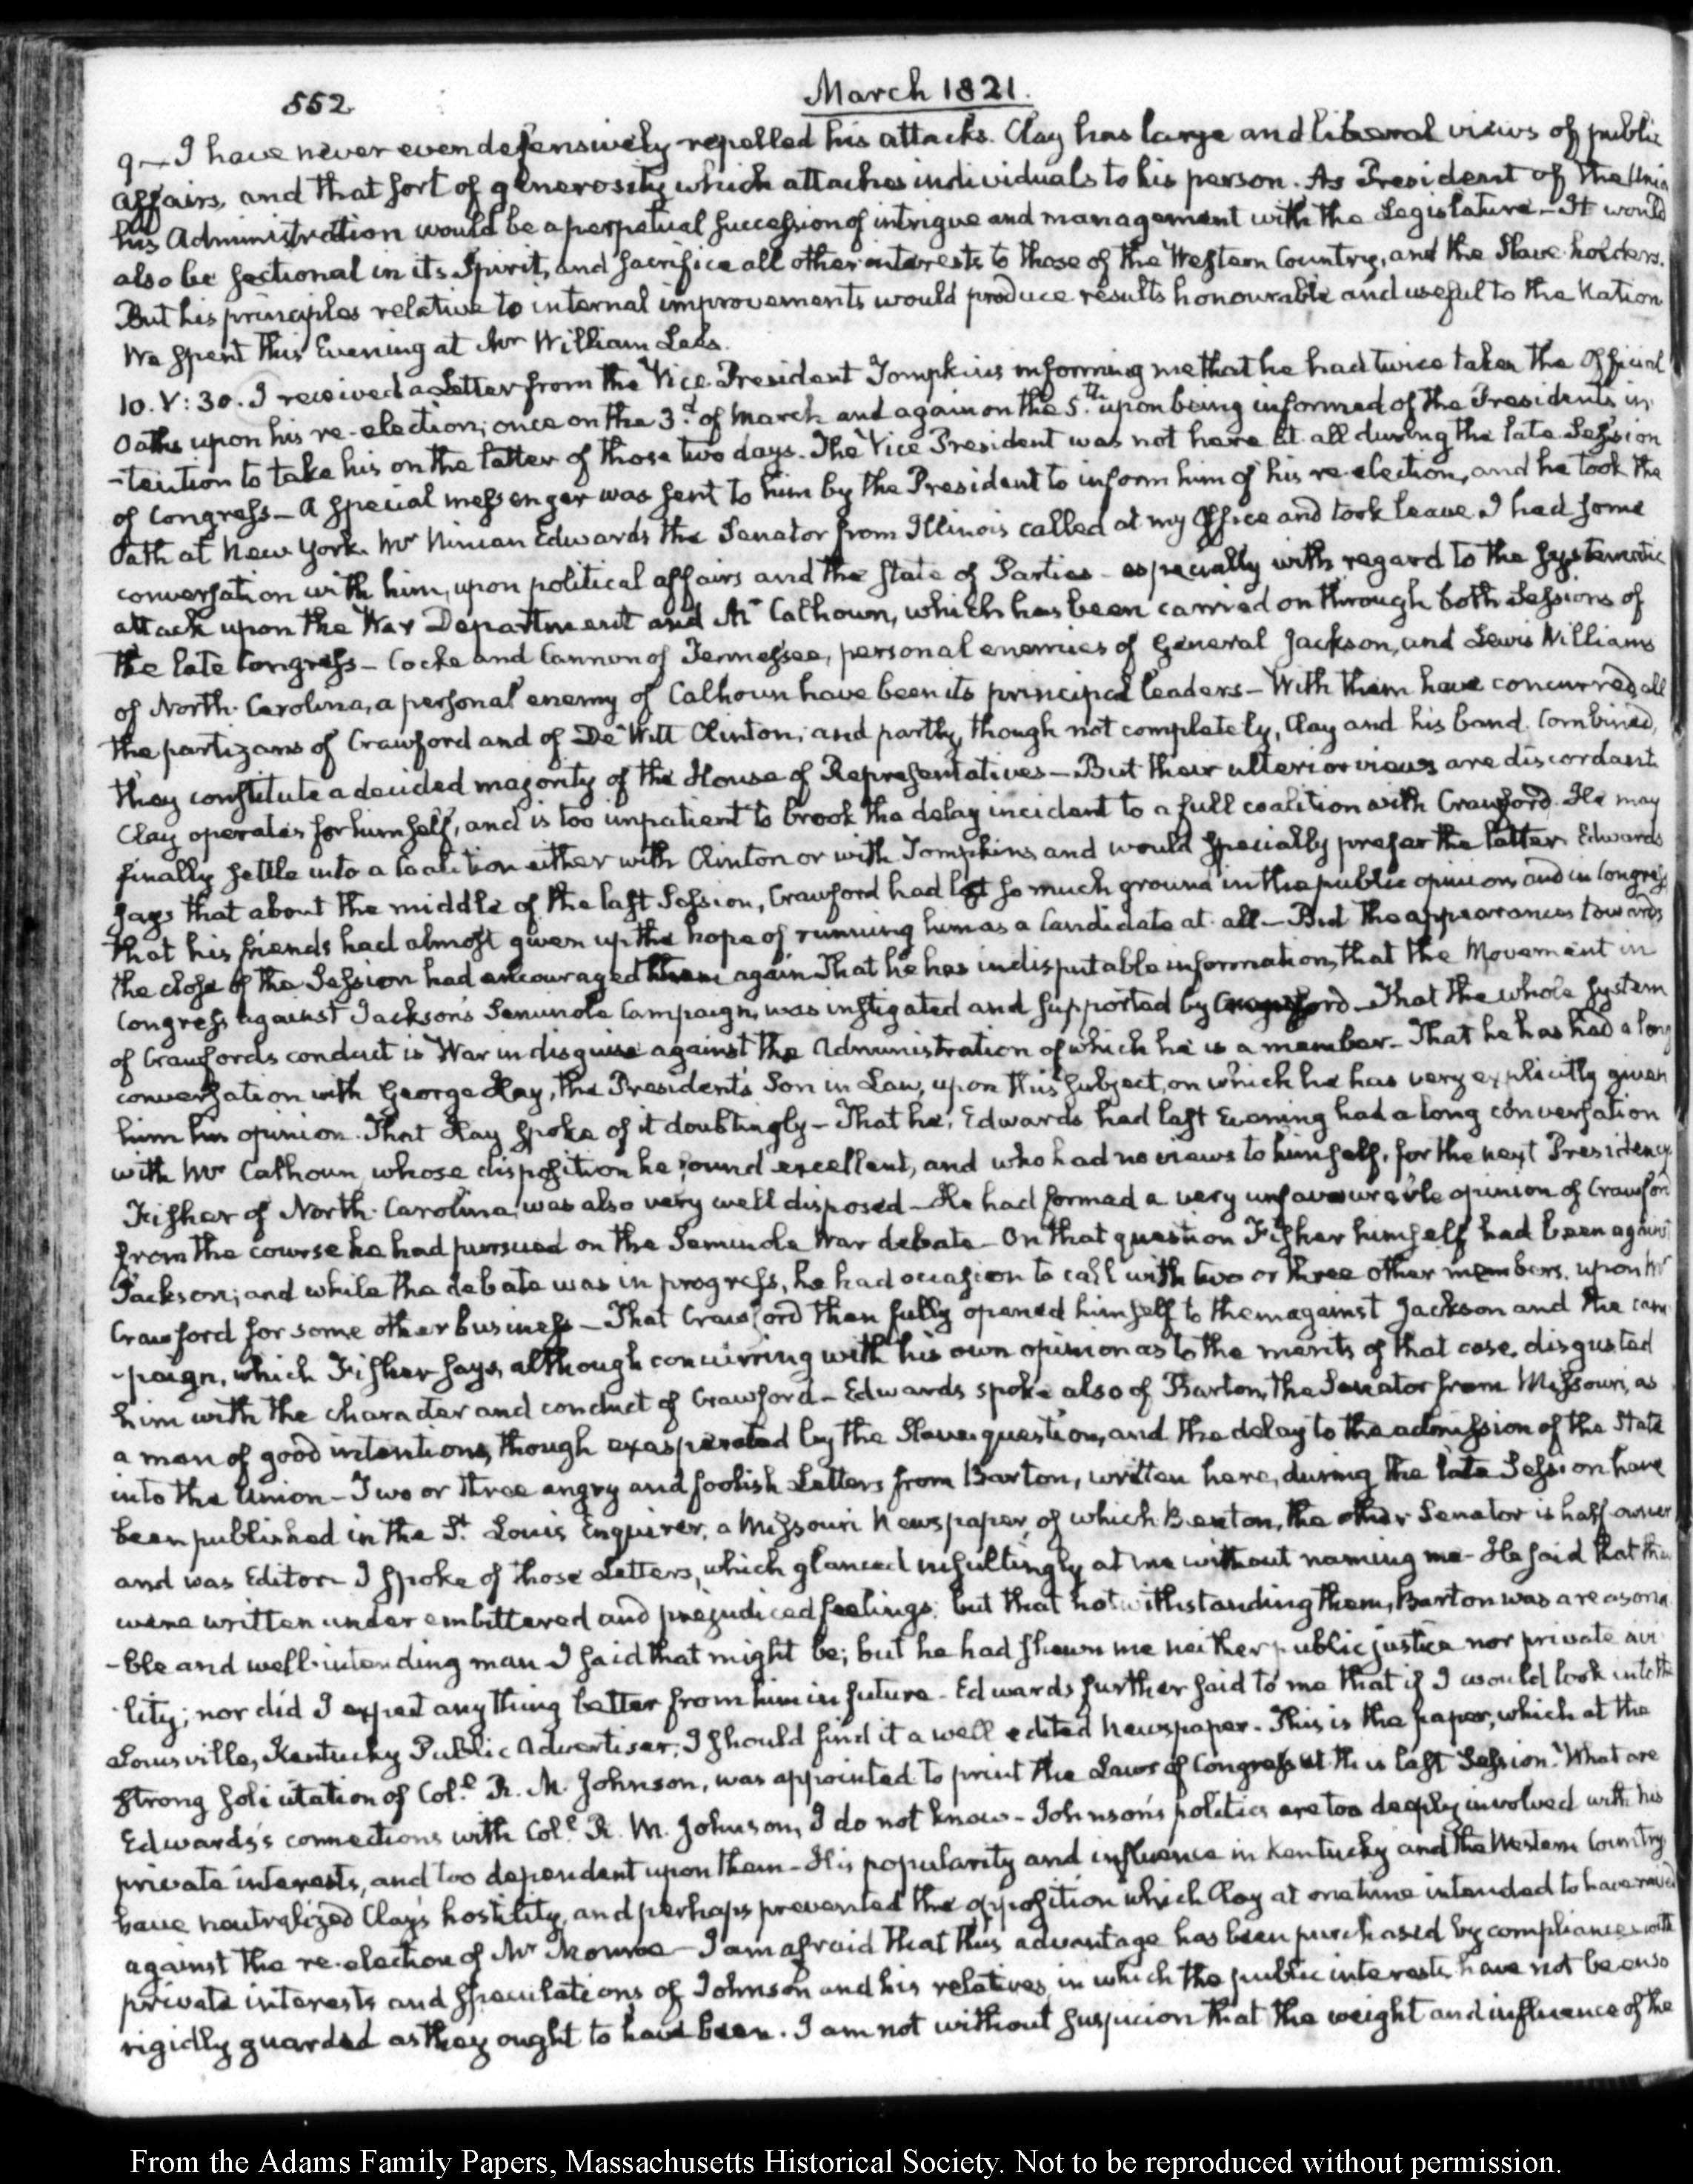 552
March 1821.
9 — I have never even defensively repelled his attacks. Clay has large and liberal views of public
affairs, and that sort of generosity which attaches individuals to his person. As President of the Union
his Administration would be a perpetual succession of intrigue and management with the Legislature — It would
also be sectional in its Spirit, and sacrifice all other interests to those of the Western Country, and the Slave-holders.
But his principles relative to internal improvements would produce results honourable and useful to the Nation
We spent this Evening at Mr William Lee's.
10. V:30. I received a Letter from the Vice-President Tompkins informing me that he had twice taken the Official
Oaths upon his re-election; once on the 3d of March and again on the 5th upon being informed of the President's in
-tention to take his on the latter of those two days. The Vice President was not here at all during the late Session
of Congress — A special messenger was sent to him by the President to inform him of his re-election, and he took the
Oath at New York. Mr Ninian Edwards the Senator from Illinois called at my Office and took leave. I had some
conversation with him, upon political affairs and the state of Parties — especially with regard to the systematic
attack upon the War Department and Mr Calhoun, which has been carried on through both Sessions of
the late Congress — Cocke and Cannon of Tennessee, personal enemies of General Jackson, and Lewis Williams
of North-Carolina, a personal enemy of Calhoun have been its principal leaders — With them have concurred all
the partizans of Crawford and of De Witt Clinton; and partly, though not completely, Clay and his band. Combined,
they constitute a decided majority of the House of Representatives — But their ulterior views are discordant.
Clay operates for himself, and is too impatient to brook the delay incident to a full coalition with Crawford. He may
finally settle into a Coalition either with Clinton or with Tompkins and would specially prefer the latter. Edwards
says that about the middle of the last Session, Crawford had lost so much ground in the public opinion and in Congress
that his friends had almost given up the hope of running him as a Candidate at all — But the appearances towards
the close of the Session had encouraged them again. That he has indisputable information, that the Movement in
Congress against Jackson's Seminole Campaign, was instigated and supported by Crawford — That the whole system
of Crawford's conduct is War in disguise against the Administration of which he is a member — That he has had a long
conversation with George Hay, the President's Son in Law, upon this subject, on which he has very explicitly given
him his opinion. That Hay spoke of it doubtingly — That he, Edwards had last Evening had a long conversation
with Mr Calhoun, whose disposition he found excellent, and who had no views to himself, for the next Presidency.
Fisher of North-Carolina, was also very well disposed — He had formed a very unfavourable opinion of Crawford
from the course he had pursued on the Seminole War debate — On that question Fisher himself had been against
Jackson; and while the debate was in progress, he had occasion to call with two or three other members, upon Mr
Crawford for some other business — That Crawford then fully opened himself to them against Jackson and the cam
-paign, which Fisher says, although concurring with his own opinion as to the merits of that case, disgusted
him with the character and conduct of Crawford — Edwards spoke also of Barton, the Senator from Missouri, as
a man of good intentions, though exasperated by the Slave question, and the delay to the admission of the State
into the Union — Two or three angry and foolish Letters from Barton, written here, during the late Session have
been published in the St. Louis Enquirer, a Missouri Newspaper, of which Benton, the other Senator is half owner
and was Editor — I spoke of those Letters, which glanced insultingly at me without naming me — He said that they
were written under embittered and prejudiced feelings; but that notwithstanding them, Barton was a reasona
-ble and well-intending man — I said that might be; but he had shewn me neither public justice nor private civi
-lity; nor did I expect any thing better from him in future — Edwards further said to me that if I would look into the
Louisville, Kentucky Public Advertiser, I should find it a well edited Newspaper — This is the paper, which at the
strong solicitation of Coll. R. M. Johnson, was appointed to print the Laws of Congress at this last Session. What are
Edwards's connections with Coll. R. M. Johnson, I do not know — Johnson's politics are too deeply involved with his
private interests, and too dependent upon them — His popularity and influence in Kentucky and the Western Country,
have neutralized Clay's hostility, and perhaps prevented the opposition which Clay at one time intended to have raised
against the re-election of Mr Monroe — I am afraid that this advantage has been purchased by compliances with
private interests and speculations of Johnson and his relatives, in which the public interests have not been so
rigidly guarded as they ought to have been. I am not without suspicion that the weight and influence of the
From the Adams Family Papers, Massachusetts Historical Society. Not to be reproduced without permission.